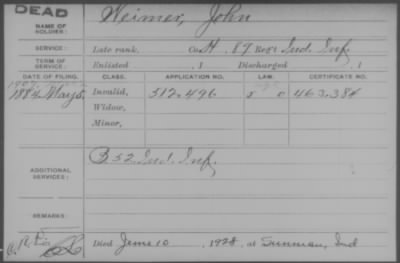 DEAD
NAME OF SOLDIER: Weimer, John
SERVICE: Late rank, Co. H, 87 Reg't Ind. Inf.
TERM OF SERVICE: Enlisted , 1 Discharged , 1
DATE OF FILING. CLASS. APPLICATION NO. LAW. CERTIFICATE NO.
1884 May 5, Invalid, 512,496 463,384
Widow,
Minor,
ADDITIONAL SERVICES: B 52 Ind. Inf.
REMARKS:
Died June 10, 1928, at Sunman, Ind